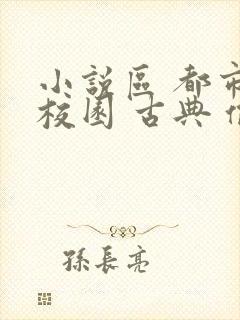 小說區 都市
校園 古典
孫長亮